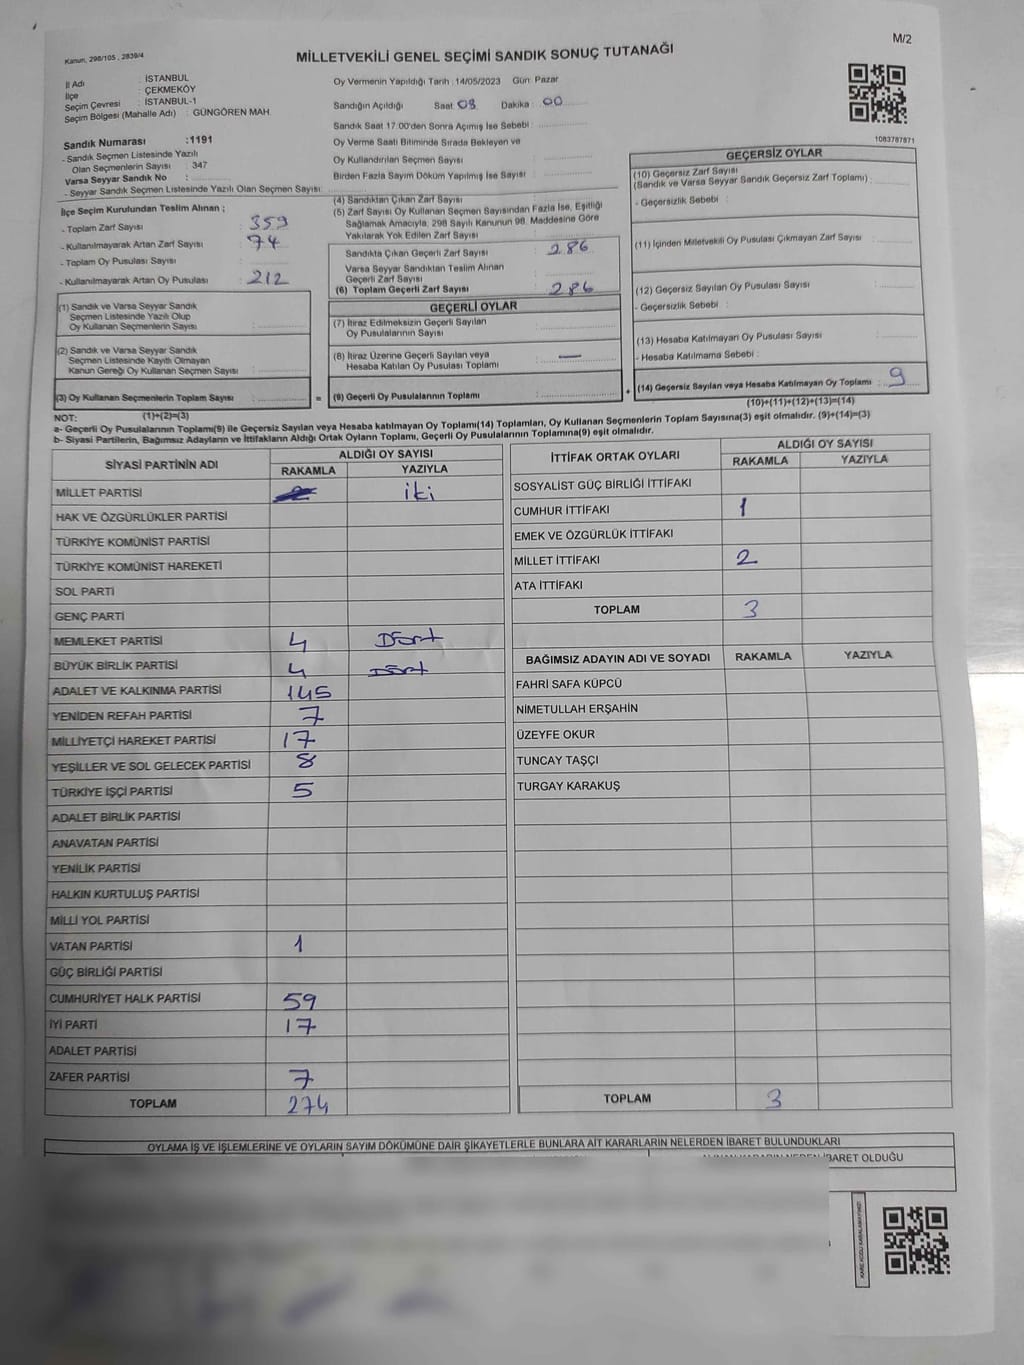 M/2
Kanun, 298/105 , 2839/4
MİLLETVEKİLİ GENEL SEÇİMİ SANDIK SONUÇ TUTANAĞI
İl Adı : İSTANBUL
İlçe : ÇEKMEKÖY
Seçim Çevresi : İSTANBUL-1
Seçim Bölgesi (Mahalle Adı) : GÜNGÖREN MAH.
Sandık Numarası :1191
- Sandık Seçmen Listesinde Yazılı
Olan Seçmenlerin Sayısı : 347
Varsa Seyyar Sandık No :
- Seyyar Sandık Seçmen Listesinde Yazılı Olan Seçmen Sayısı:
İlçe Seçim Kurulundan Teslim Alınan ;
- Toplam Zarf Sayısı : 359
- Kullanılmayarak Artan Zarf Sayısı : 74
- Toplam Oy Pusulası Sayısı :
- Kullanılmayarak Artan Oy Pusulası : 212
(1) Sandık ve Varsa Seyyar Sandık
Seçmen Listesinde Yazılı Olup
Oy Kullanan Seçmenlerin Sayısı :
(2) Sandık ve Varsa Seyyar Sandık
Seçmen Listesinde Kayıtlı Olmayan
Kanun Gereği Oy Kullanan Seçmen Sayısı :
(3) Oy Kullanan Seçmenlerin Toplam Sayısı :
(1)+(2)=(3)
Oy Vermenin Yapıldığı Tarih : 14/05/2023 Gün: Pazar
Sandığın Açıldığı Saat: 08 Dakika : 00
Sandık Saat 17:00'den Sonra Açımış İse Sebebi :
Oy Verme Saati Bitiminde Sırada Bekleyen ve
Oy Kullandırılan Seçmen Sayısı :
Birden Fazla Sayım Döküm Yapılmış İse Sayısı :
(4) Sandıktan Çıkan Zarf Sayısı :
(5) Zarf Sayısı Oy Kullanan Seçmen Sayısından Fazla İse, Eşitliği
Sağlamak Amacıyla, 298 Sayılı Kanunun 98. Maddesine Göre
Yakılarak Yok Edilen Zarf Sayısı :
Sandıkta Çıkan Geçerli Zarf Sayısı : 286
Varsa Seyyar Sandıktan Teslim Alınan
Geçerli Zarf Sayısı :
(6) Toplam Geçerli Zarf Sayısı : 286
GEÇERLİ OYLAR
(7) İtiraz Edilmeksizin Geçerli Sayılan
Oy Pusulalarının Sayısı :
(8) İtiraz Üzerine Geçerli Sayılan veya
Hesaba Katılan Oy Pusulası Toplamı : —
= (9) Geçerli Oy Pusulalarının Toplamı : +
1083787871
GEÇERSİZ OYLAR
(10) Geçersiz Zarf Sayısı
(Sandık ve Varsa Seyyar Sandık Geçersiz Zarf Toplamı) :
- Geçersizlik Sebebi :
(11) İçinden Milletvekili Oy Pusulası Çıkmayan Zarf Sayısı :
(12) Geçersiz Sayılan Oy Pusulası Sayısı :
- Geçersizlik Sebebi :
(13) Hesaba Katılmayan Oy Pusulası Sayısı :
- Hesaba Katılmama Sebebi :
(14) Geçersiz Sayılan veya Hesaba Katılmayan Oy Toplamı : 9
(10)+(11)+(12)+(13)=(14)
NOT:
a- Geçerli Oy Pusulalarının Toplamı(9) ile Geçersiz Sayılan veya Hesaba katılmayan Oy Toplamı(14) Toplamları, Oy Kullanan Seçmenlerin Toplam Sayısına(3) eşit olmalıdır. (9)+(14)=(3)
b- Siyasi Partilerin, Bağımsız Adayların ve İttifakların Aldığı Ortak Oyların Toplamı, Geçerli Oy Pusulalarının Toplamına(9) eşit olmalıdır.
SİYASİ PARTİNİN ADI
ALDIĞI OY SAYISI
RAKAMLA YAZIYLA
MİLLET PARTİSİ 2 iki
HAK VE ÖZGÜRLÜKLER PARTİSİ
TÜRKİYE KOMÜNİST PARTİSİ
TÜRKİYE KOMÜNİST HAREKETİ
SOL PARTİ
GENÇ PARTİ
MEMLEKET PARTİSİ 4 Dört
BÜYÜK BİRLİK PARTİSİ 4 Dört
ADALET VE KALKINMA PARTİSİ 145
YENİDEN REFAH PARTİSİ 7
MİLLİYETÇİ HAREKET PARTİSİ 17
YEŞİLLER VE SOL GELECEK PARTİSİ 8
TÜRKİYE İŞÇİ PARTİSİ 5
ADALET BİRLİK PARTİSİ
ANAVATAN PARTİSİ
YENİLİK PARTİSİ
HALKIN KURTULUŞ PARTİSİ
MİLLİ YOL PARTİSİ
VATAN PARTİSİ 1
GÜÇ BİRLİĞİ PARTİSİ
CUMHURİYET HALK PARTİSİ 59
İYİ PARTİ 17
ADALET PARTİSİ
ZAFER PARTİSİ 7
TOPLAM 274
İTTİFAK ORTAK OYLARI
ALDIĞI OY SAYISI
RAKAMLA YAZIYLA
SOSYALİST GÜÇ BİRLİĞİ İTTİFAKI
CUMHUR İTTİFAKI 1
EMEK VE ÖZGÜRLÜK İTTİFAKI
MİLLET İTTİFAKI 2
ATA İTTİFAKI
TOPLAM 3
BAĞIMSIZ ADAYIN ADI VE SOYADI RAKAMLA YAZIYLA
FAHRİ SAFA KÜPCÜ
NİMETULLAH ERŞAHİN
ÜZEYFE OKUR
TUNCAY TAŞÇI
TURGAY KARAKUŞ
TOPLAM 3
OYLAMA İŞ VE İŞLEMLERİNE VE OYLARIN SAYIM DÖKÜMÜNE DAİR ŞİKAYETLERLE BUNLARA AİT KARARLARIN NELERDEN İBARET BULUNDUKLARI
İBARET OLDUĞU